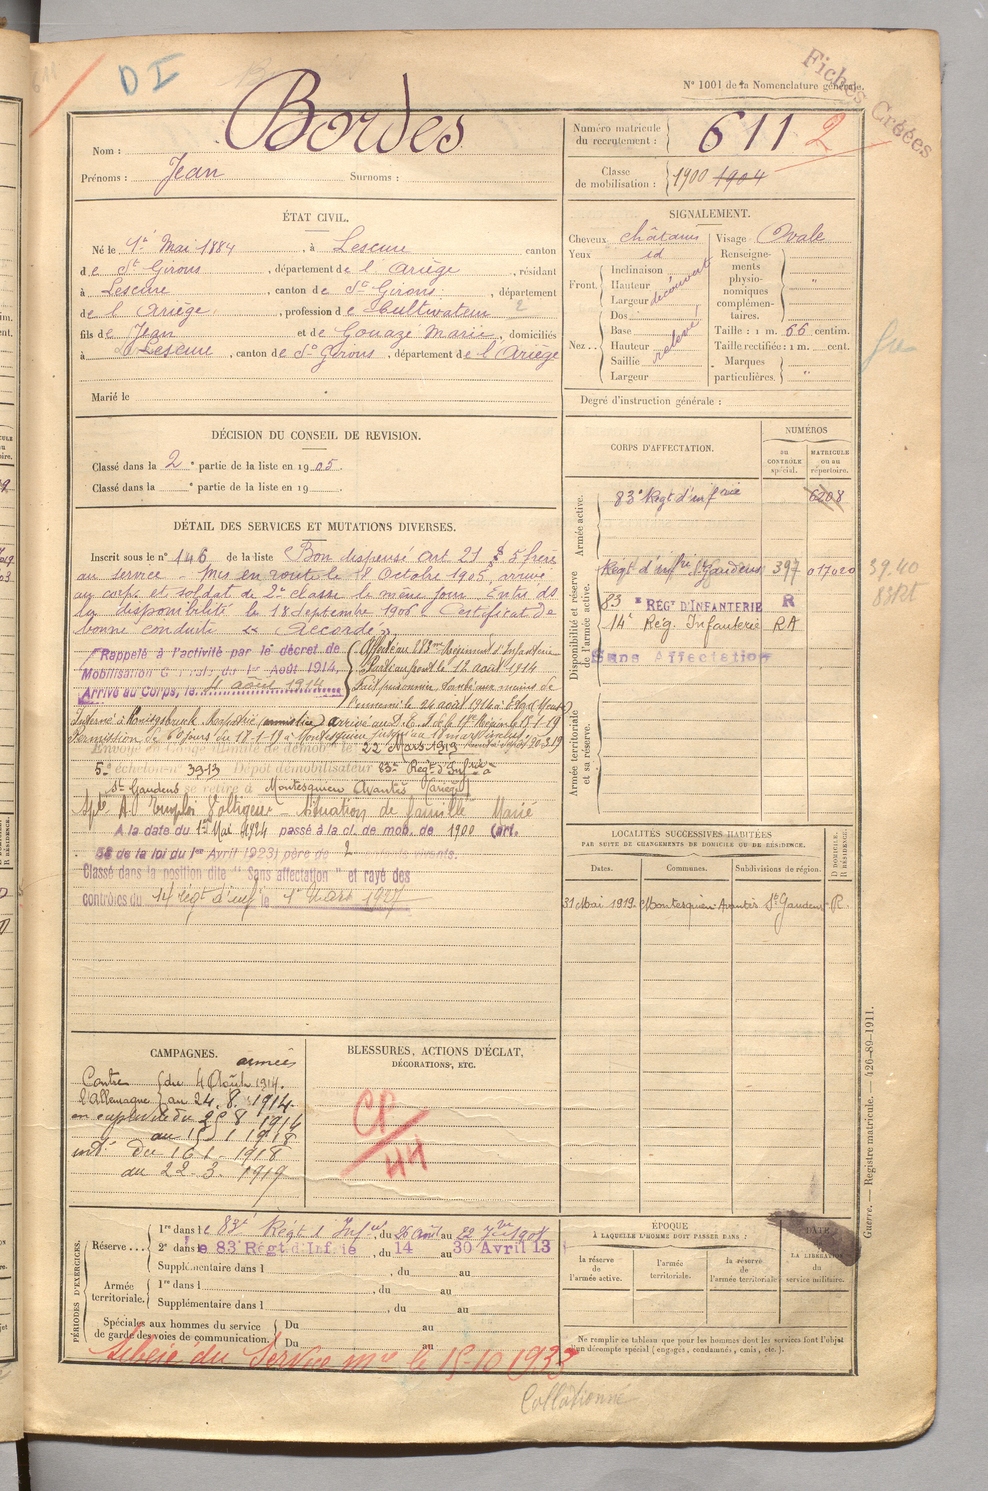 D I
N° 1001 de la Nomenclature générale.
Fiches Créées
Nom : Bordes
Prénoms : Jean Surnoms :
Numéro matricule du recrutement : 611 2
Classe de mobilisation : 1900 1904
ÉTAT CIVIL.
Né le 1er Mai 1884, à Lescure canton
de St Girons, département de l'Ariège, résidant
à Lescure, canton de St Girons, département
de l'Ariège, profession de Cultivateur
fils de Jean et de Gouaze Marie, domiciliés
à Lescure, canton de St Girons, département de l'Ariège
Marié le
SIGNALEMENT.
Cheveux châtains
Yeux id
Front. Inclinaison
Hauteur
Largeur
découvert
Nez.. Dos
Base
Hauteur
Saillie
Largeur
relevé
Visage Ovale
Renseignements physionomiques complémentaires. "
Taille : 1 m. 66 centim.
Taille rectifiée : 1 m. cent.
Marques particulières. "
Degré d'instruction générale :
DÉCISION DU CONSEIL DE REVISION.
Classé dans la 2e partie de la liste en 1905.
Classé dans la e partie de la liste en 19 .
CORPS D'AFFECTATION.
NUMÉROS
au CONTRÔLE spécial.
MATRICULE ou au répertoire.
Armée active.
83e Régt d'infrie 6208
Disponibilité et réserve de l'armée active.
Régt d'infie St Gaudens 397 017020
39.40
83 RI
83e RÉGt D'INFANTERIE R
14e Rég. Infanterie RA
Sans Affectation
Armée territoriale et sa réserve.
DÉTAIL DES SERVICES ET MUTATIONS DIVERSES.
Inscrit sous le n° 146 de la liste Bon dispensé art 21 § 5 frère
au service – Mis en route le 8 Octobre 1905, arrivé
au corps et soldat de 2e classe le même jour. Entré ds
la disponibilité le 18 Septembre 1906 Certificat de
bonne conduite « Accordé »
Rappelé à l'activité par le décret de
Mobilisation Générale du 1er Août 1914.
Arrivé au Corps, le 4 août 1914
Affecté au 83me Régiment d'Infanterie
Parti au front le 12 août 1914
Fait prisonnier, tombé aux mains de
l'ennemi le 24 août 1914 à
Interné à Königsbruck. Rapatrié (armistice) arrivé au D.E.I. de la 17e Région le 15-1-19
Permission de 60 jours du 17-1-19 à Montesquieu jusqu'au 18 mars inclus
Envoyé en congé illimité de démobon le 22 Mars 1919
5e échelon n° 3913 Dépôt démobilisateur 83e Régt d'Infrie à
St Gaudens se retire à Montesquieu Avantès (Ariège)
Spté A.D. Emploi Voltigeur – Situation de famille Marié
A la date du 1er Mai 1924 passé à la cl. de mob. de 1900 (art.
58 de la loi du 1er Avril 1923) père de 2 enfants vivants.
Classé dans la position dite "Sans affectation" et rayé des
contrôles du 14e régt d'inf le 1er Mars 1927
LOCALITÉS SUCCESSIVES HABITÉES
PAR SUITE DE CHANGEMENTS DE DOMICILE OU DE RÉSIDENCE.
Dates. Communes. Subdivisions de région. D DOMICILE. R RÉSIDENCE.
31 Mai 1919 Montesquieu Avantès St Gaudens R.
CAMPAGNES.
armées
Contre l'Allemagne du 4 Août 1914.
au 24. 8. 1914
en captivité du 25 8 1914
au 15 1 1918
intr du 16 1. 1918
au 22. 3. 1919
BLESSURES, ACTIONS D'ÉCLAT,
DÉCORATIONS, ETC.
PÉRIODES D'EXERCICES.
Réserve... 1re dans le 83e Régt d'Infie, du 26 Août au 22 7bre 1908
2e dans le 83e Régt d'Infie, du 14 au 30 Avril 13
Supplémentaire dans l , du au
Armée territoriale. 1re dans l , du au
Supplémentaire dans l , du au
Spéciales aux hommes du service de garde des voies de communication. Du au
Du au
ÉPOQUE
À LAQUELLE L'HOMME DOIT PASSER DANS :
la réserve de l'armée active.
l'armée territoriale.
la réserve de l'armée territoriale
DATE DE LA LIBÉRATION du service militaire.
Ne remplir ce tableau que pour les hommes dont les services font l'objet
d'un décompte spécial (engagés, condamnés, omis, etc.).
Libéré du Service mre le 15-10 1933
Collationné
Guerre. — Registre matricule. — 426-89-1911.